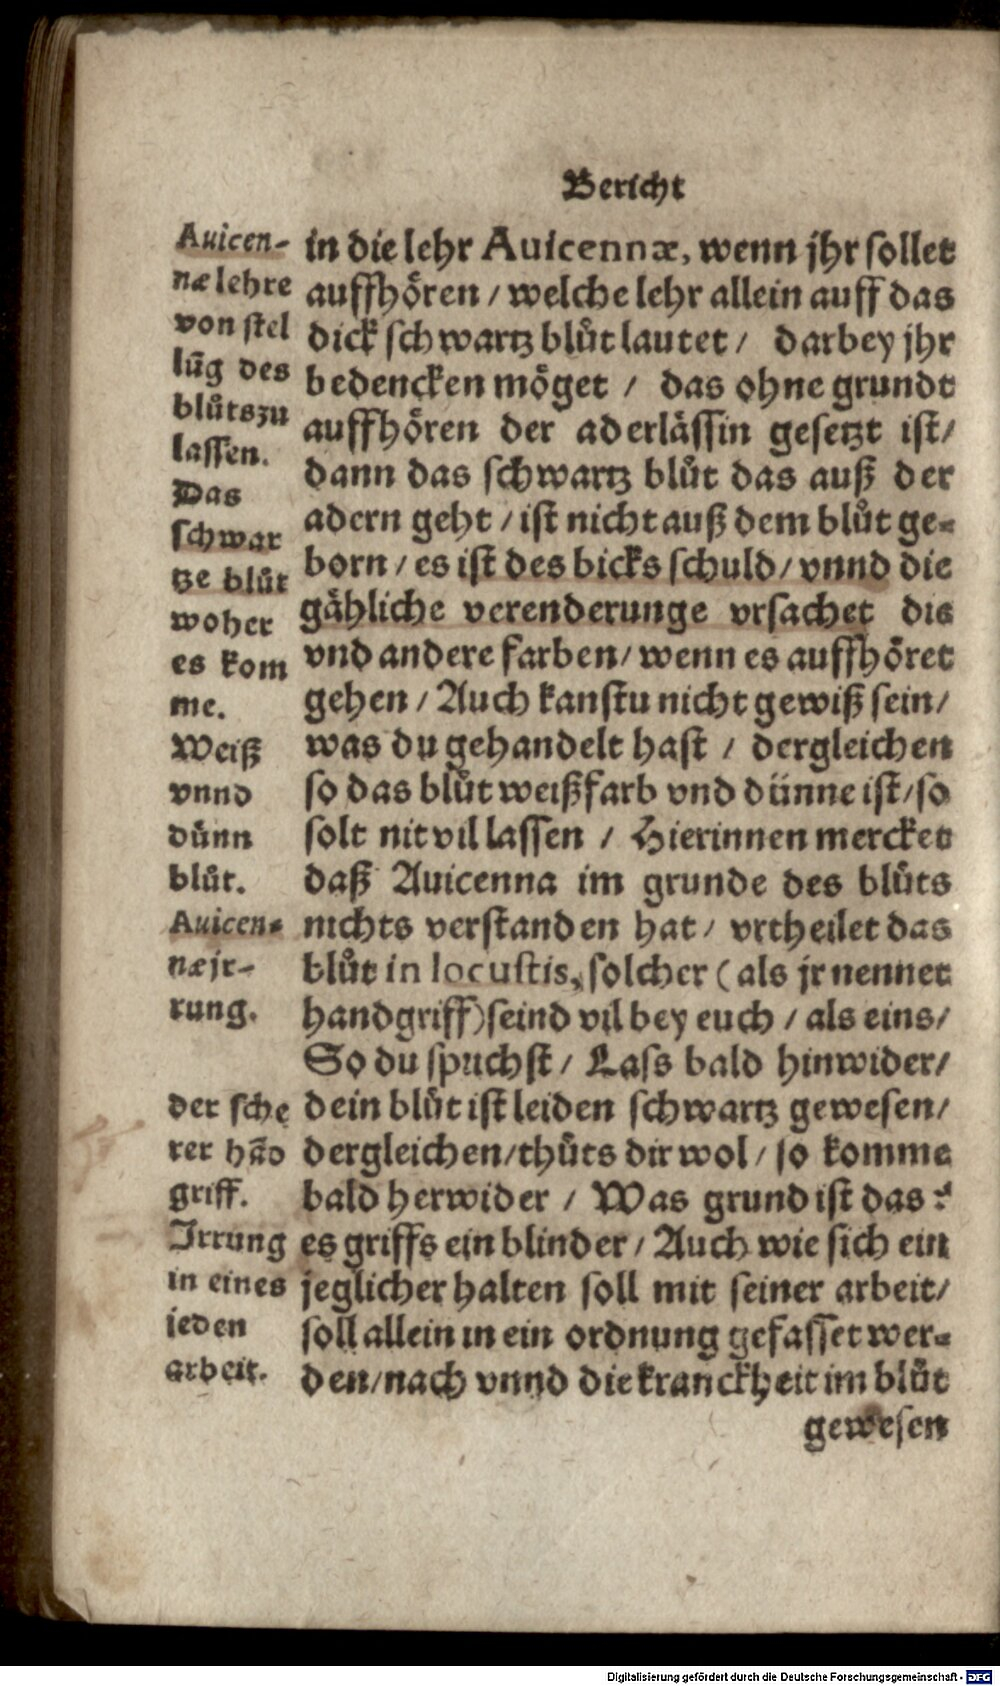 Bericht
Auicen-
næ lehre
von stel
lũg des
blůts zu
lassen.
Das
schwar
tze blůt
woher
es kom
me.
Weiß
vnnd
dünn
blůt.
Auicen-
næ jr-
rung.
der sche
rer hãd
griff.
Irrung
in eines
jeden
arbeit.
in die lehr Auicennæ, wenn jhr sollet
auffhören / welche lehr allein auff das
dick schwartz blůt lautet / darbey jhr
bedencken möget / das ohne grundt
auffhören der aderlässin gesetzt ist /
dann das schwartz blůt das auß der
adern geht / ist nicht auß dem blůt ge-
born / es ist des bicks schuld / vnnd die
gähliche verenderunge vrsachet die
vnd andere farben / wenn es auffhöret
gehen / Auch kanstu nicht gewiß sein /
was du gehandelt hast / dergleichen
so das blůt weißfarb vnd dünne ist / so
solt nit vil lassen / Hierinnen mercket
daß Auicenna im grunde des blůts
nichts verstanden hat / vrtheilet das
blůt in locustis, solcher ( als jr nennet
handgriff) seind vil bey euch / als eins /
So du sprichst / Lass bald hinwider /
dein blůt ist leiden schwartz gewesen /
dergleichen / thůts dir wol / so komme
bald herwider / Was grund ist das?
es griffs ein blinder / Auch wie sich ein
jeglicher halten soll mit seiner arbeit /
soll allein in ein ordnung gefasset wer-
den / nach vnnd die kranckheit im blůt
gewesen
Digitalisierung gefördert durch die Deutsche Forschungsgemeinschaft - DFG